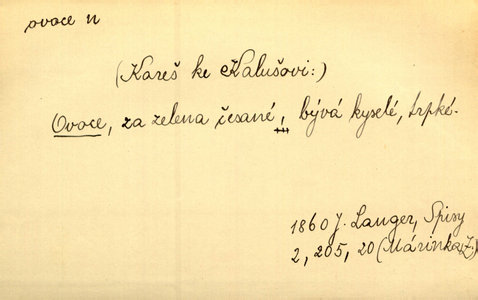 ovoce n
(Kareš ke Kalušovi:)
Ovoce, za zelena česané, bývá kyselé, trpké.
1860 J. Langer, Spisy
2, 205, 20 (Márinka, Z.)